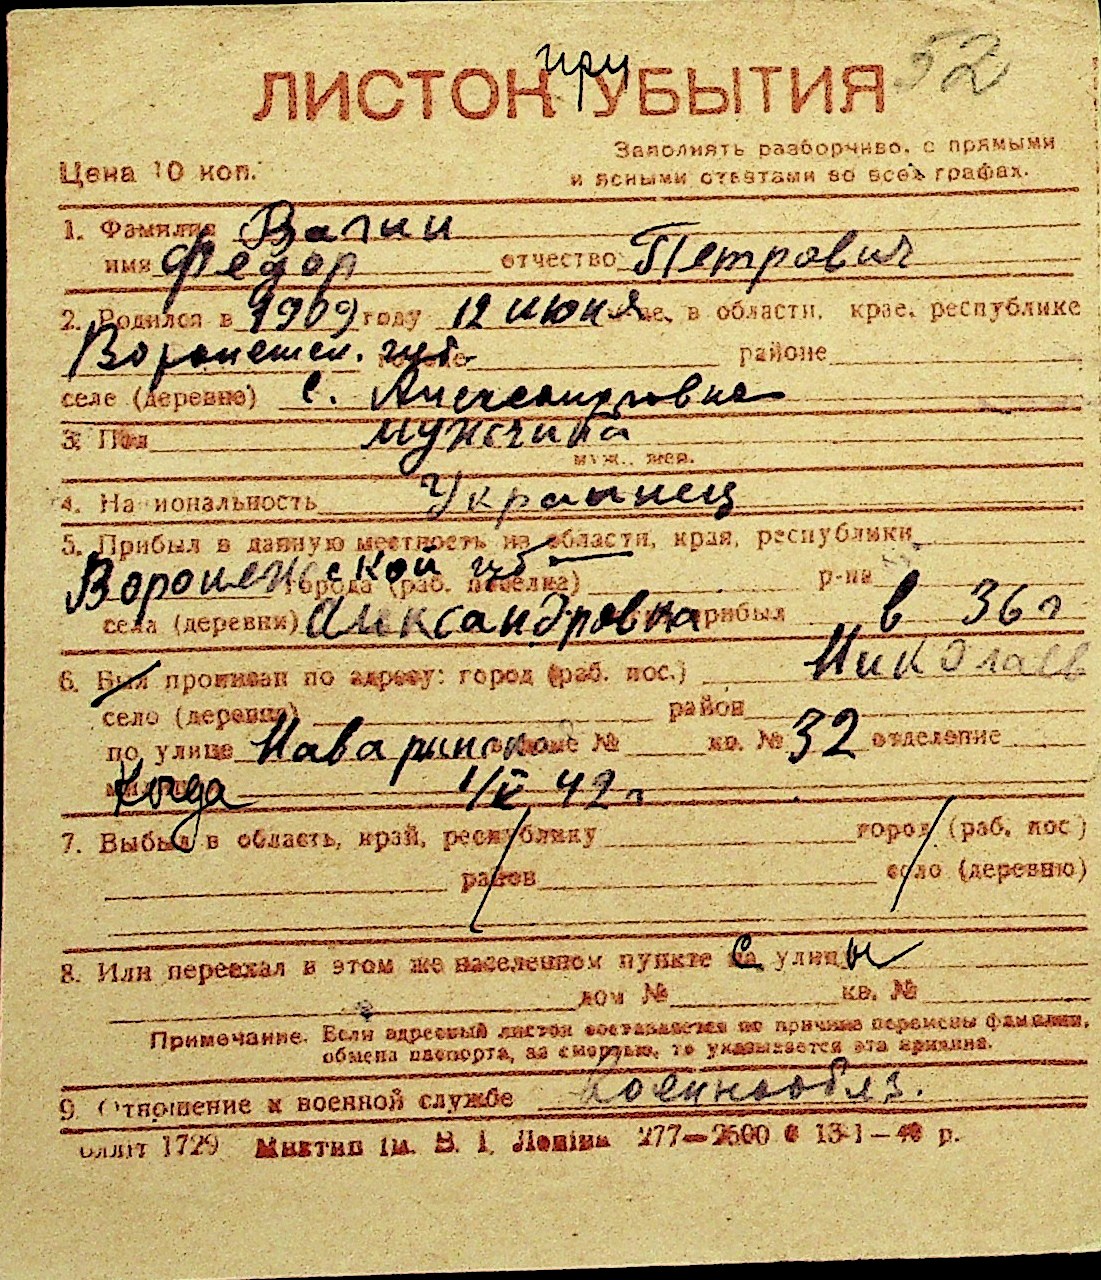 при 52
ЛИСТОК УБЫТИЯ
Заполнять разборчиво, с прямыми
Цена 10 коп.
и ясными ответами во всех графах.
1. Фамилия Вагин
имя Федор отчество Петрович
2. Родился в 1909 году 12 июня в области, крае, республике
Воронежск. губ. районе
селе (деревне) с. Александровна
3. Пол мужчина
муж., жен.
4. Национальность Украинец
5. Прибыл в данную местность из области, края, республики
Воронежской губ города (раб. поселка) р-на
села (деревни) Александровка прибыл в 36 г
6. Был прописан по адресу: город (раб. пос.) Николаев
село (деревня) район
по улице Наваринской доме № кв. № 32 отделение
милиции Когда 1/V 42 г
7. Выбыл в область, край, республику город (раб. пос.)
район село (деревню)
8. Или переехал в этом же населенном пункте с на улицы
дом № кв. №
Примечание. Если адресный листок составляется по причине перемены фамилии,
обмена паспорта, за смертью, то указывается эта причина.
9. Отношение к военной службе Военнообяз.
1729 Миктип ім. В. І. Леніна 277—2500 13-1—40 р.